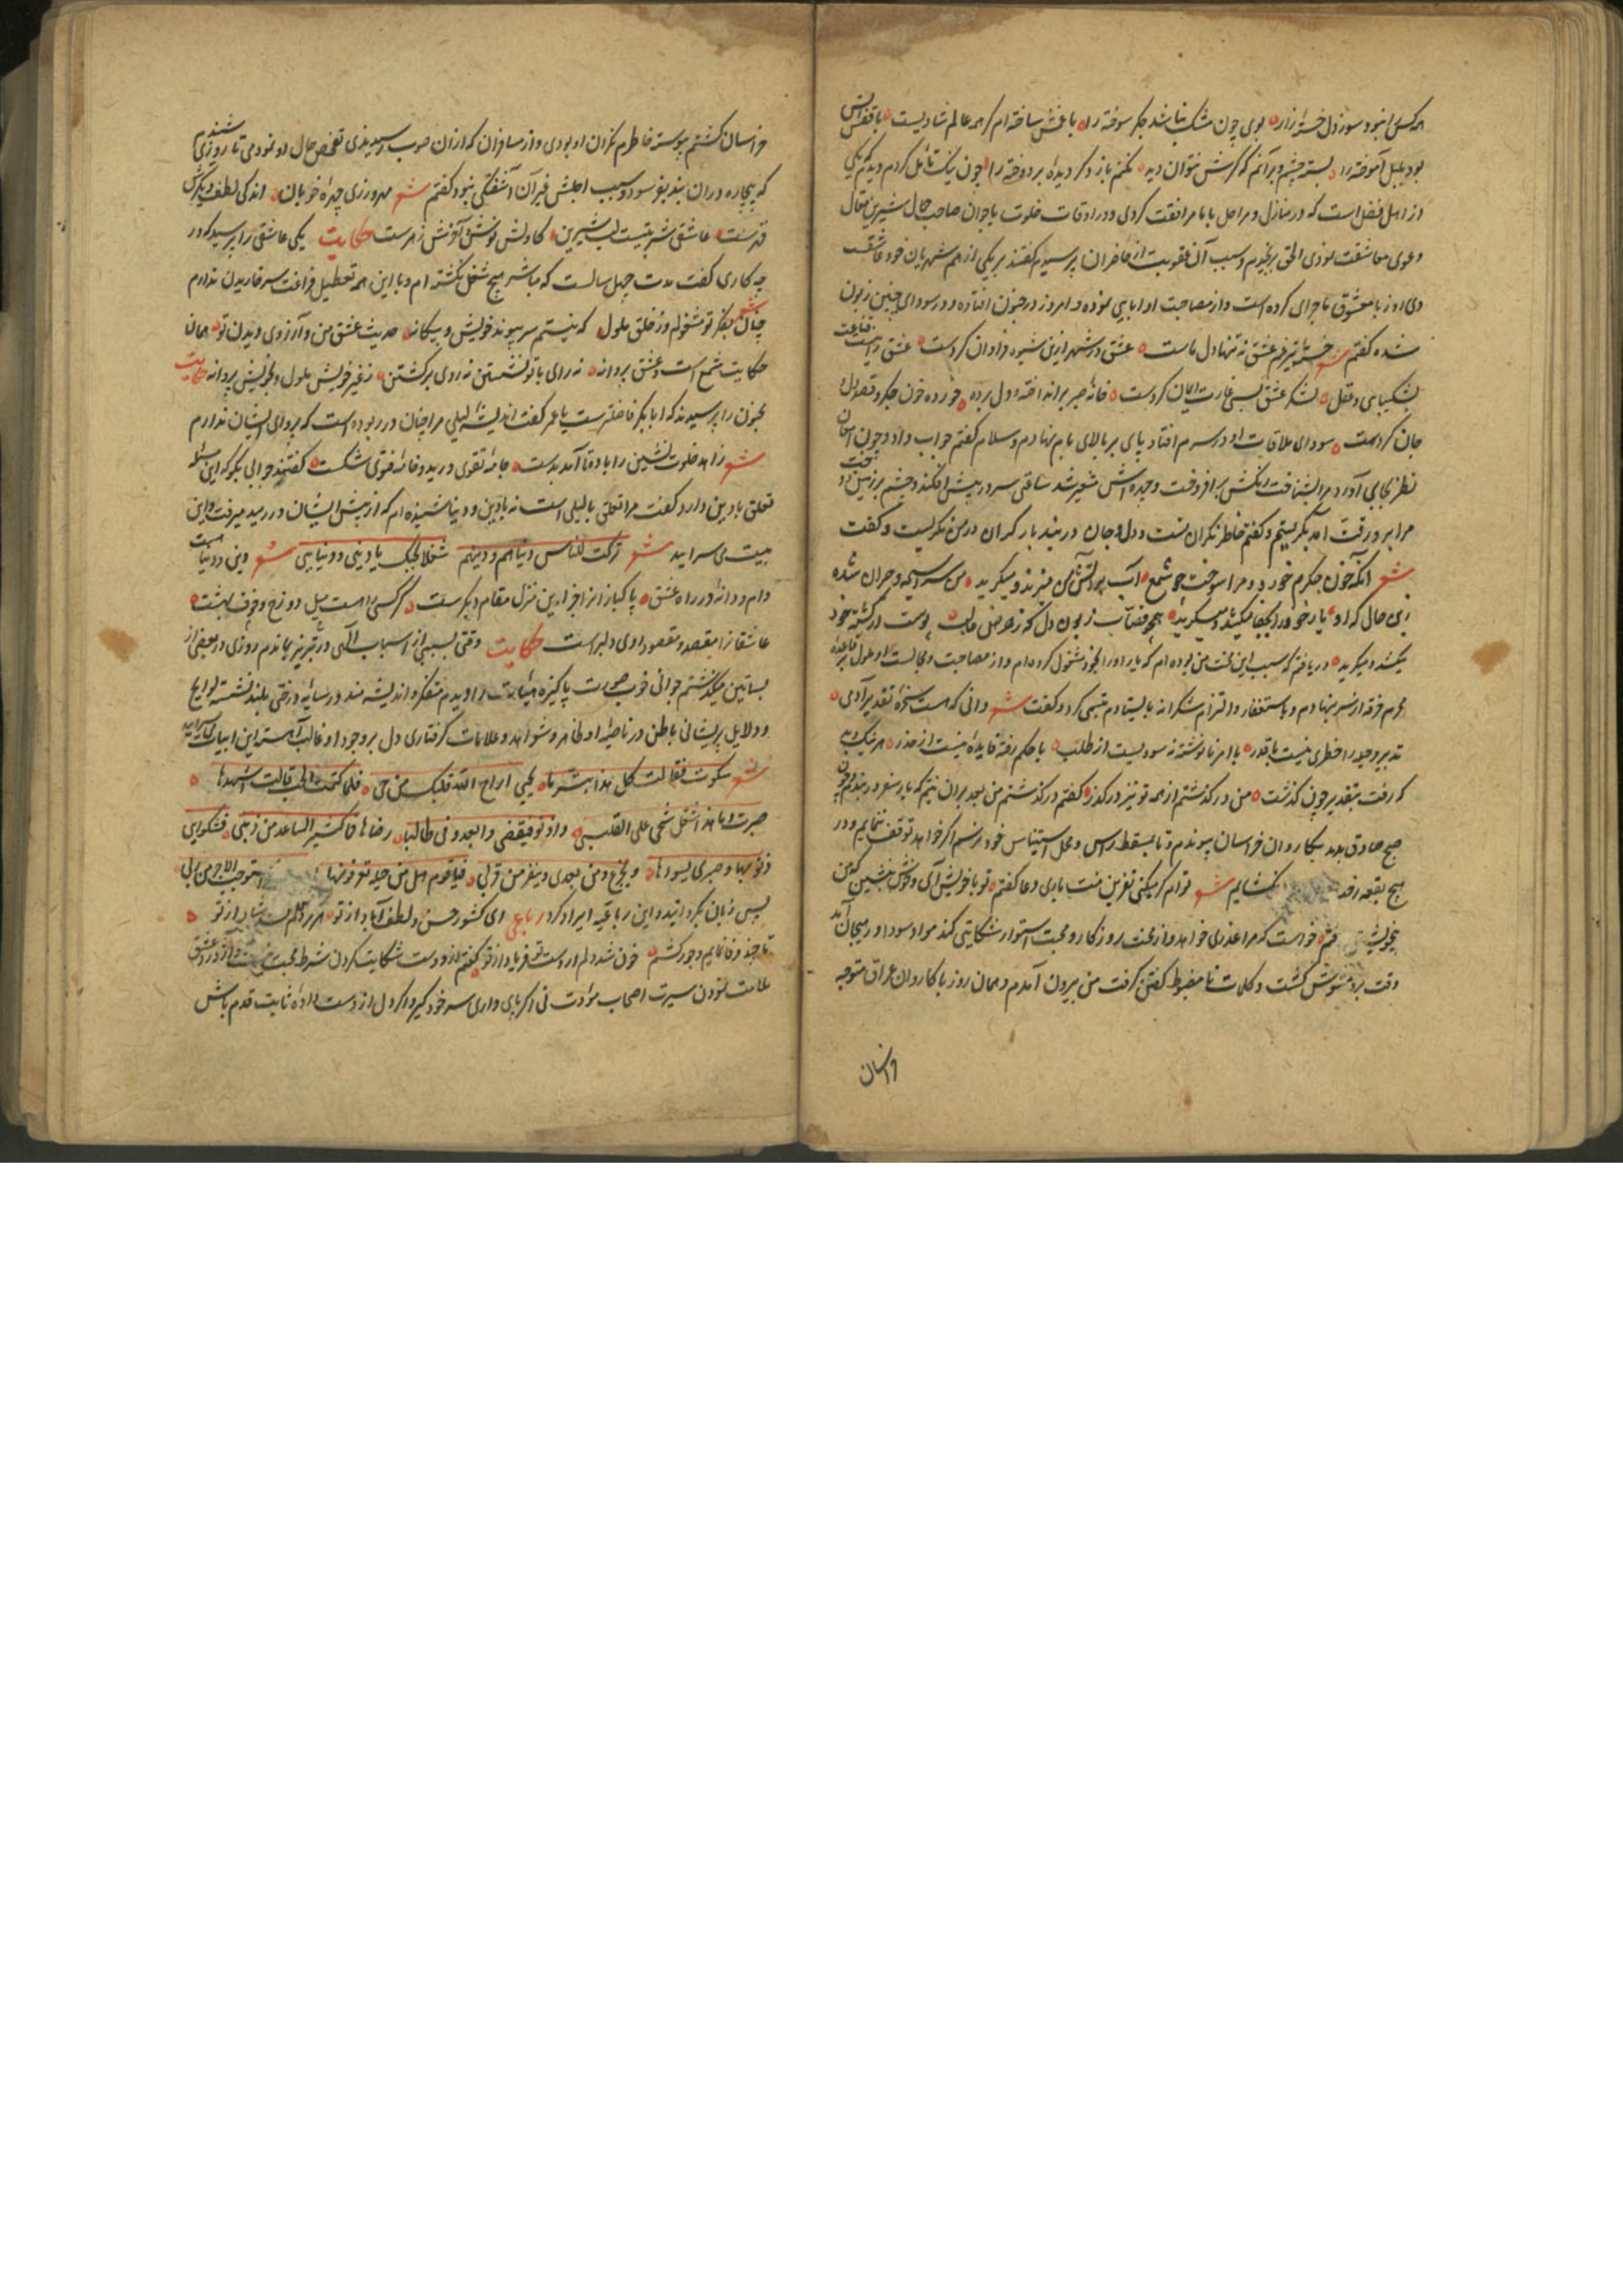 هر کسی انبود سوز دل خسته زار بوی چون مشک نباشد جگر سوخته را با غمش ساخته ام کز همه عالم شادیست با قفس انس
بود بلبل آموخته را بسته چشم و برآنم که کرش نتوان دید نکنم باز دگر دیده بردوخته را چون نیک تأمل کردم دیدم که یکی
از اهل فضل است که در منازل و مراحل با ما مرافقت کردی و در اوقات خلوت با جوان صاحب جمال شیرین مقال
دعوی معاشقت نمودی الحق برنجیدم و سبب آن عقوبت از حاضران پرسیدم گفتند بر یکی از هم شهریان خود عاشقست
دی روز با معشوق ماجرای کرده است و از مصاحبت او ابایی نموده و امروز در جنون افتاده و در سودای چنین زبون
شده گفتم شعر خسته تیر غم عشق نه تنها دل ماست عشق در شهر ازین شیوه فراوان کردست عشق را نیست قناعت
بشکیبای و عقل لشکر عشق بسی غارت ایمان کردست خانه صبر برانداخته و دل برده خورده خون جگر و قصد
جان کردست سودای ملاقات او در سرم افتاد پای بر بالای بام نهادم و سلام گفتم جواب داد و چون
نظر بجای آورد مرا بشناخت رنگش برافروخت و چهره اش متغیر شد ساعتی سر در پیش افکند و چشم بر زمین دوخت
مرا بر و رقت آمد بگریستم و گفتم خاطر نگران تست و دل و جان در بند بار گران در من نگریست و گفت
شعر آنکه خون جگرم خورد و مرا سوخت چو شمع آب بر آتش من میزند و میگرید من سراسیمه و حیران شده
زین حال که او یار خود را بجفا میکشد و میگرید همچو قصاب زبون دل که ز حرص طلب پوست از کشته خود
میکشد و میگرید دریافتم که سبب این محنت من بوده ام که یار او را بخود مشغول کرده ام و از مصاحبت و مجالست او ملول
جرم خرقه از سر بنهادم و باستغفار و التزام شکرانه بایستادم تبسمی کرد و گفت شعر دانی که هست سخره تقدیر آدمی
تدبیر و حیله را خطری نیست با قدر با امر نانوشته نه سودیست از طلب با حکم رفته فایده نیست از حذر هر نیک و بد
که رفت بتقدیر چون گذشت من در گذشتم از همه تو نیز در گذر گفتم در گذشتم من بعد بران نیتم که بار سفر در بندم و چون
صبح صادق بدمد بکاروان خراسان پیوندم و تا بمسقط راس و محل استیناس خود نرسم اگر خواهد توقف ننمایم و در
هیچ بقعه رخت نگشایم شعر توام کر میکنی نفرین منت باری دعا گفتم تو با خویش آی و خوش بنشین که من
بخویش رفتم خواست که مرا عذری خواهد و از محنت روزگار و محبت استوار شکایتی کند مواد سودا و در هیجان آمد
وقت برو مشوش گشت و کلمات نا مضبوط گفتن گرفت من بیرون آمدم و همان روز با کاروان عراق متوجه
خراسان
خراسان گشتم پیوسته خاطرم نگران او بودی و از مسافران که از ان صوب رسیدندی تفحص حال او نمودمی تا روزی شنیدم
که بیچاره در ان بند بفرسود و سبب اجلش غیر آن آشفتگی نبود گفتم شعر مهرورزی چهره خوبان اندکی لطف و بیکران
قهرست عاشقی شربتیست لب شیرین کاولش نوش و آخرش زهرست حکایت یکی عاشقی را پرسید که در
چه کاری گفت مدت چهل سالست که مباشر هیچ شغل نگشته ام و با این همه تعطیل فراغت سر خاریدن ندارم
شعر چنان بفکر تو مشغولم و ز خلق ملول که نیستم سر پیوند خویش و بیگانه حدیث عشق من و آرزوی دیدن تو همان
حکایت شمع است و عشق پروانه نه رای با تو نشستن نه روی برگشتن ز غیر خویش ملول و بخویش پروانه حکایت
مجنون را پرسیدند که ابابکر فاضلترست یا عمر گفت اندیشه لیلی مرا چنان در ربوده است که پروای ایشان ندارم
شعر زاهد خلوت نشین را باده تا آمد بدست جامه تقوی درید و خامه فتوی شکست گفتند جوابی بگو که این مسئله
تعلق بادین دارد گفت مرا تعلق بالیلی است نه بادین و دنیا شنیده ام که از پیش ایشان در رمید میرفت و این
بیت می سرایید شعر ترکت للناس دنیاهم و دینهم شغلا بحبک یا دینی و دنیایی شعر دین و دنیا هست
دام و دانه در راه عشق پاکبازانرا جز این منزل مقام دیگرست هر کسی را هست میل دوزخ و خوف بهشت
عاشقانرا مقصد و مقصود روی دلبر است حکایت وقتی بسببی از اسباب آگهی در تبریز بماندم روزی در بعضی از
بساتین میگذشتم جوانی خوب صورت پاکیزه هیئات را دیدم متفکر و اندیشه مند در سایه درختی بلند نشسته لوایح
و دلایل پریشانی باطن در ناصیه او ظاهر و شواهد و علامات گرفتاری دل بر وجود او غالب آهسته این ابیات می سرایید
شعر شکوت فقالت کل هذا تبرما بحبی اراح الله قلبک من حبی فلما کتمت الحب قالت لشد ما
صبرت و ما هذا بفعل شجی علی القلب و ادنو فیقصی و ابعد و نی طالبا رضاها فاکثیر التباعد من ذنبی فشکوای
تؤذیها و صبری یسوءها و تجزع من بعدی و ینفر من قربی فیا قوم هل من حیلة تعرفونها استوجب الاجر من ربی
پس زبان بگردانید و این رباعیه ایراد کرد رباعی ای کشور حسن و لطف آباد از تو هر مردم ستم شاد از تو
تا چند وفا نمایم و جور کشم خون شد دلم از دست تو فریاد از تو گفتم از دوست شکایت کردن شرط محبت نیست و از درد عشق
علامت نمودن سیرت اصحاب مودت نی اگر پای داری سر خود گیر و اگر دل از دست داده ثابت قدم باش